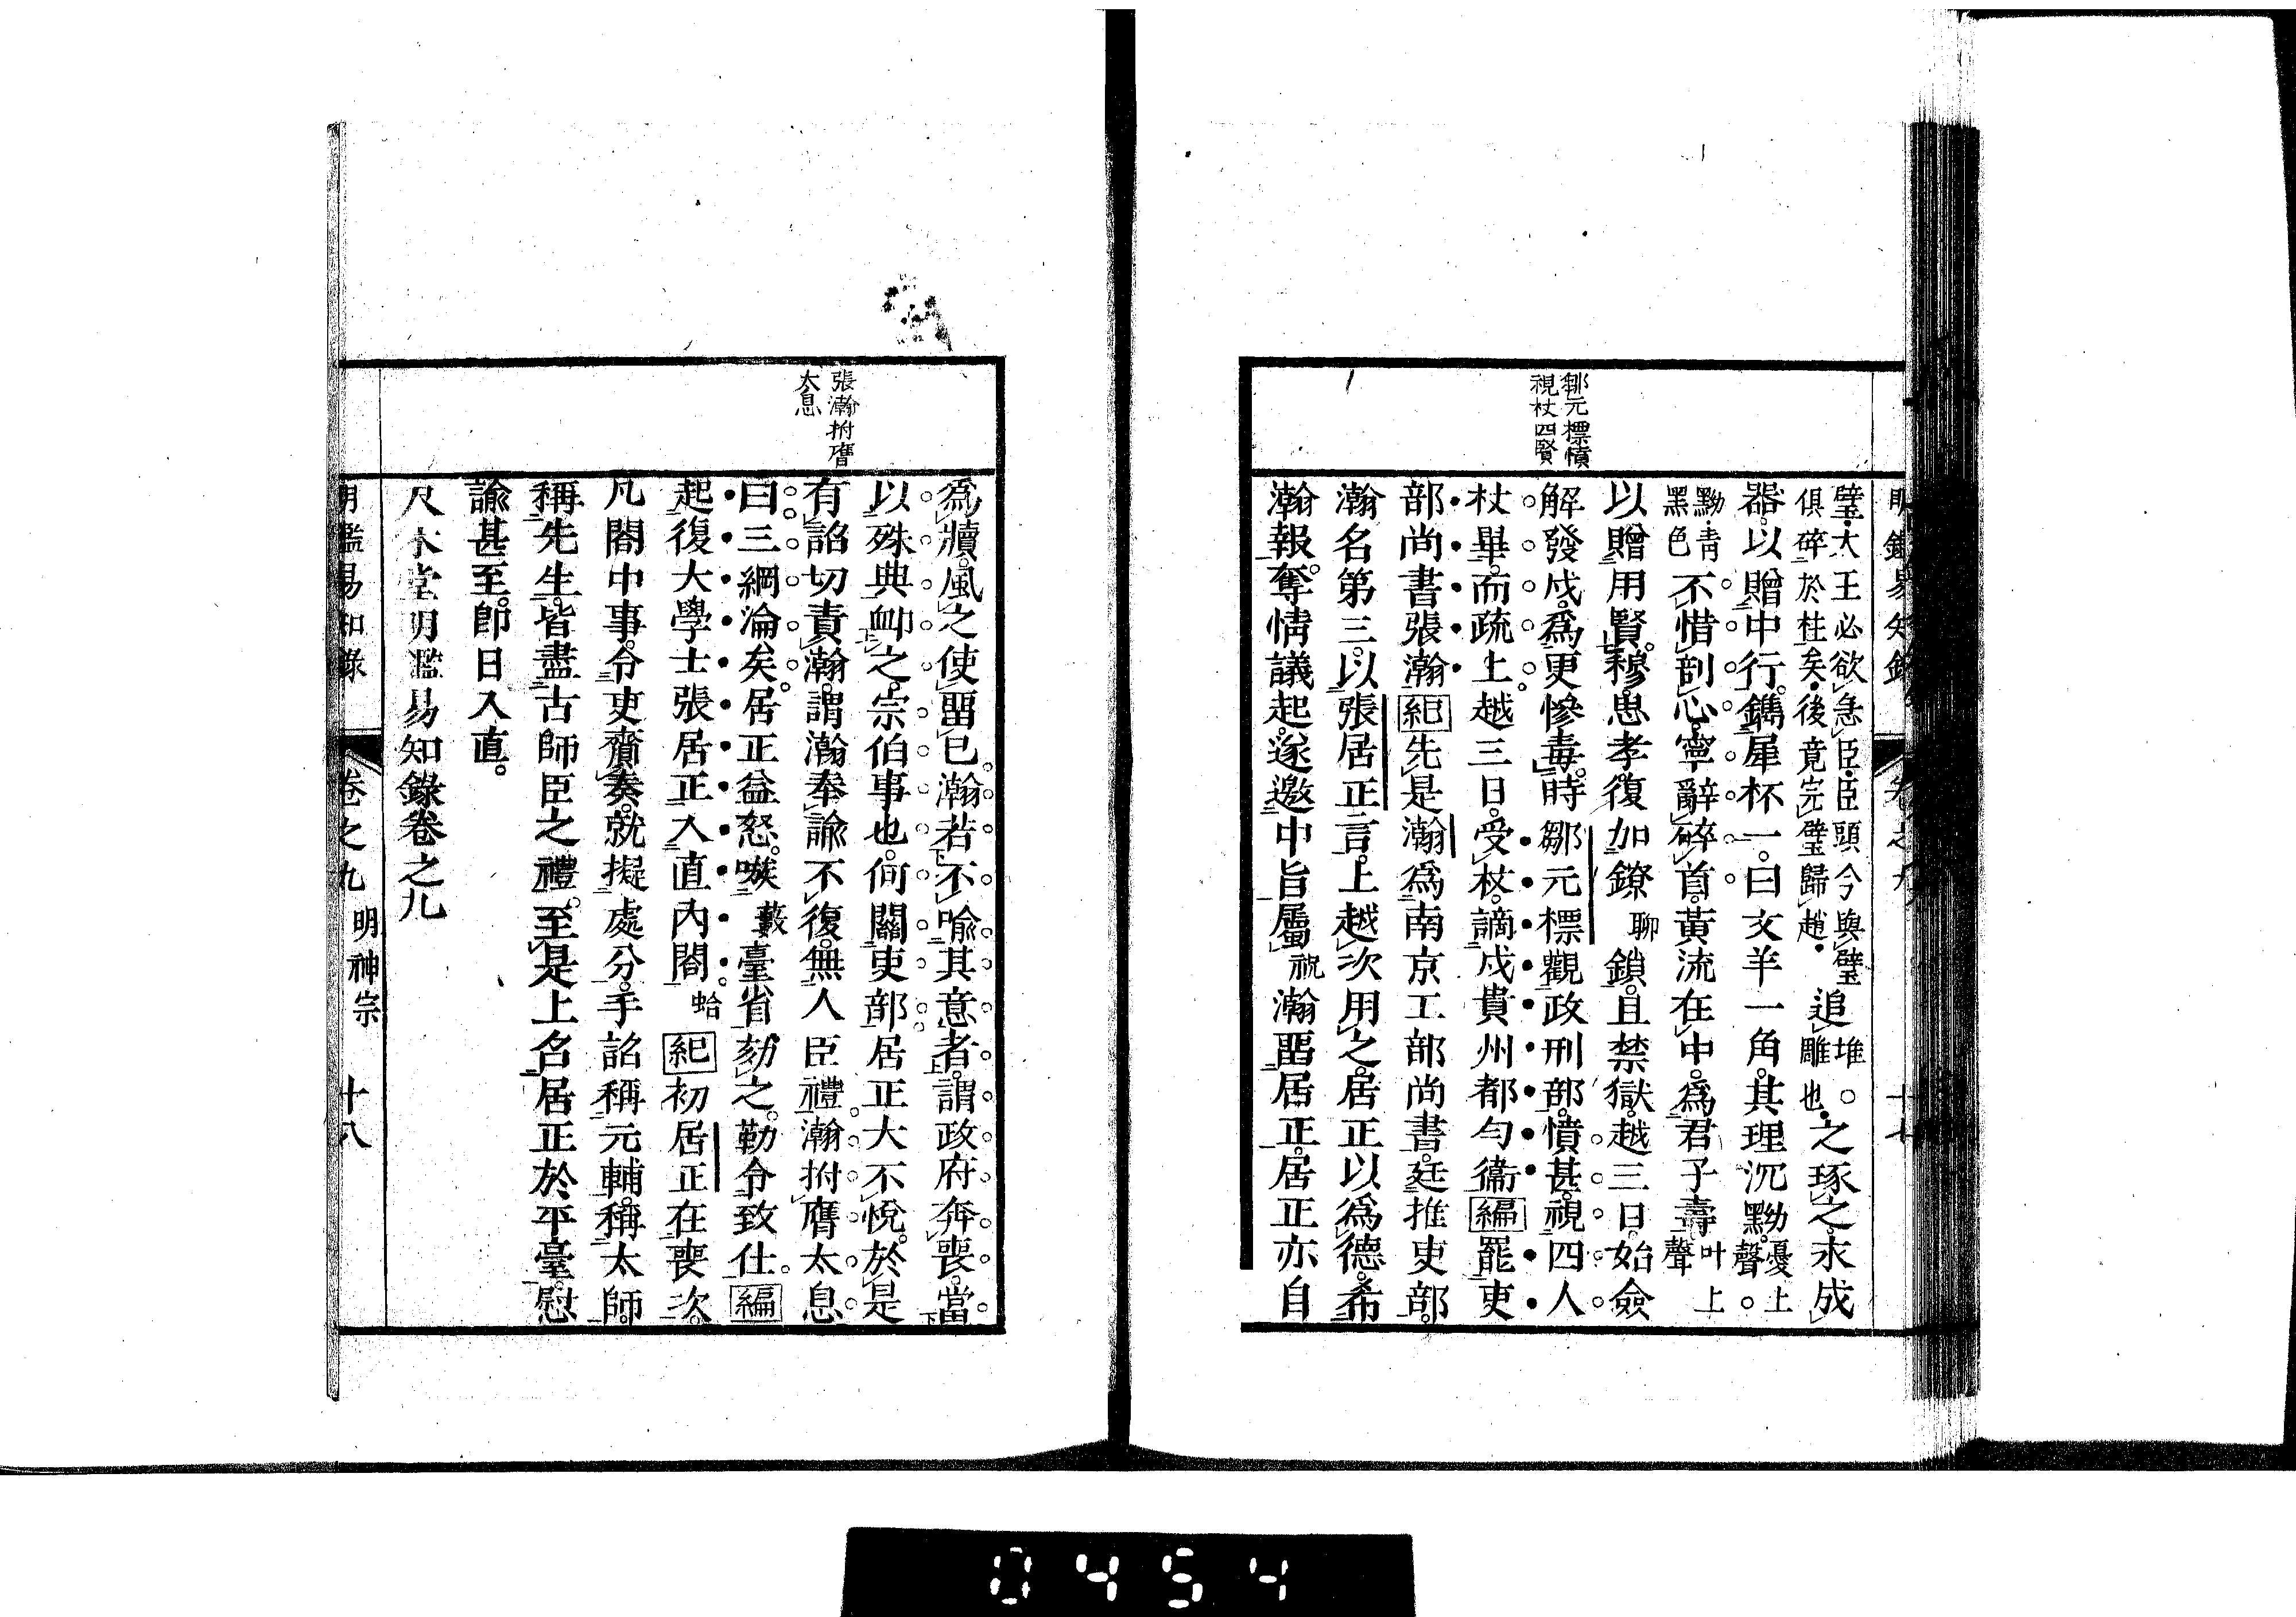 鄒元標憤
視杖四賢
璧大王必欲急臣臣頭今與璧
俱碎於柱矣後竟完璧歸趙
追堆雕也。之琢之永成
器以贈中行鐫犀杯一曰文羊一角其理沉黝憂上聲。
黝青黑色不惜剖心寧辭碎首黃流在中爲君子壽叶上聲
以贈用賢穆思孝復加鐐聊鎖且禁獄越三日始僉
解發戍爲更慘毒時鄒元標觀政刑部憤甚視四人
杖畢而疏上越三日受杖謫戍貴州都勻衞編罷吏
部尚書張瀚紀先是瀚爲南京工部尚書廷推吏部
瀚名第三以張居正言上越次用之居正以爲德希
瀚報奪情議起遂邀中旨屬祝瀚畱居正居正亦自
張瀚拊膺
太息
爲牘風之使畱已瀚若不喻其意者謂政府奔喪當
以殊典卹之宗伯事也何關吏部居正大不悅於是
有詔切責瀚謂瀚奉諭不復無人臣禮瀚拊膺太息
曰三綱淪矣居正益怒嗾藪臺省劾之勒令致仕編
起復大學士張居正入直內閣蛤紀初居正在喪次
凡閣中事令吏齎奏就擬處分手詔稱元輔稱太師
稱先生皆盡古師臣之禮至是上召居正於平臺慰
諭甚至即日入直
尺木堂明鑑易知錄卷之九
明鑑易知錄 卷之九 明神宗 十八
0454